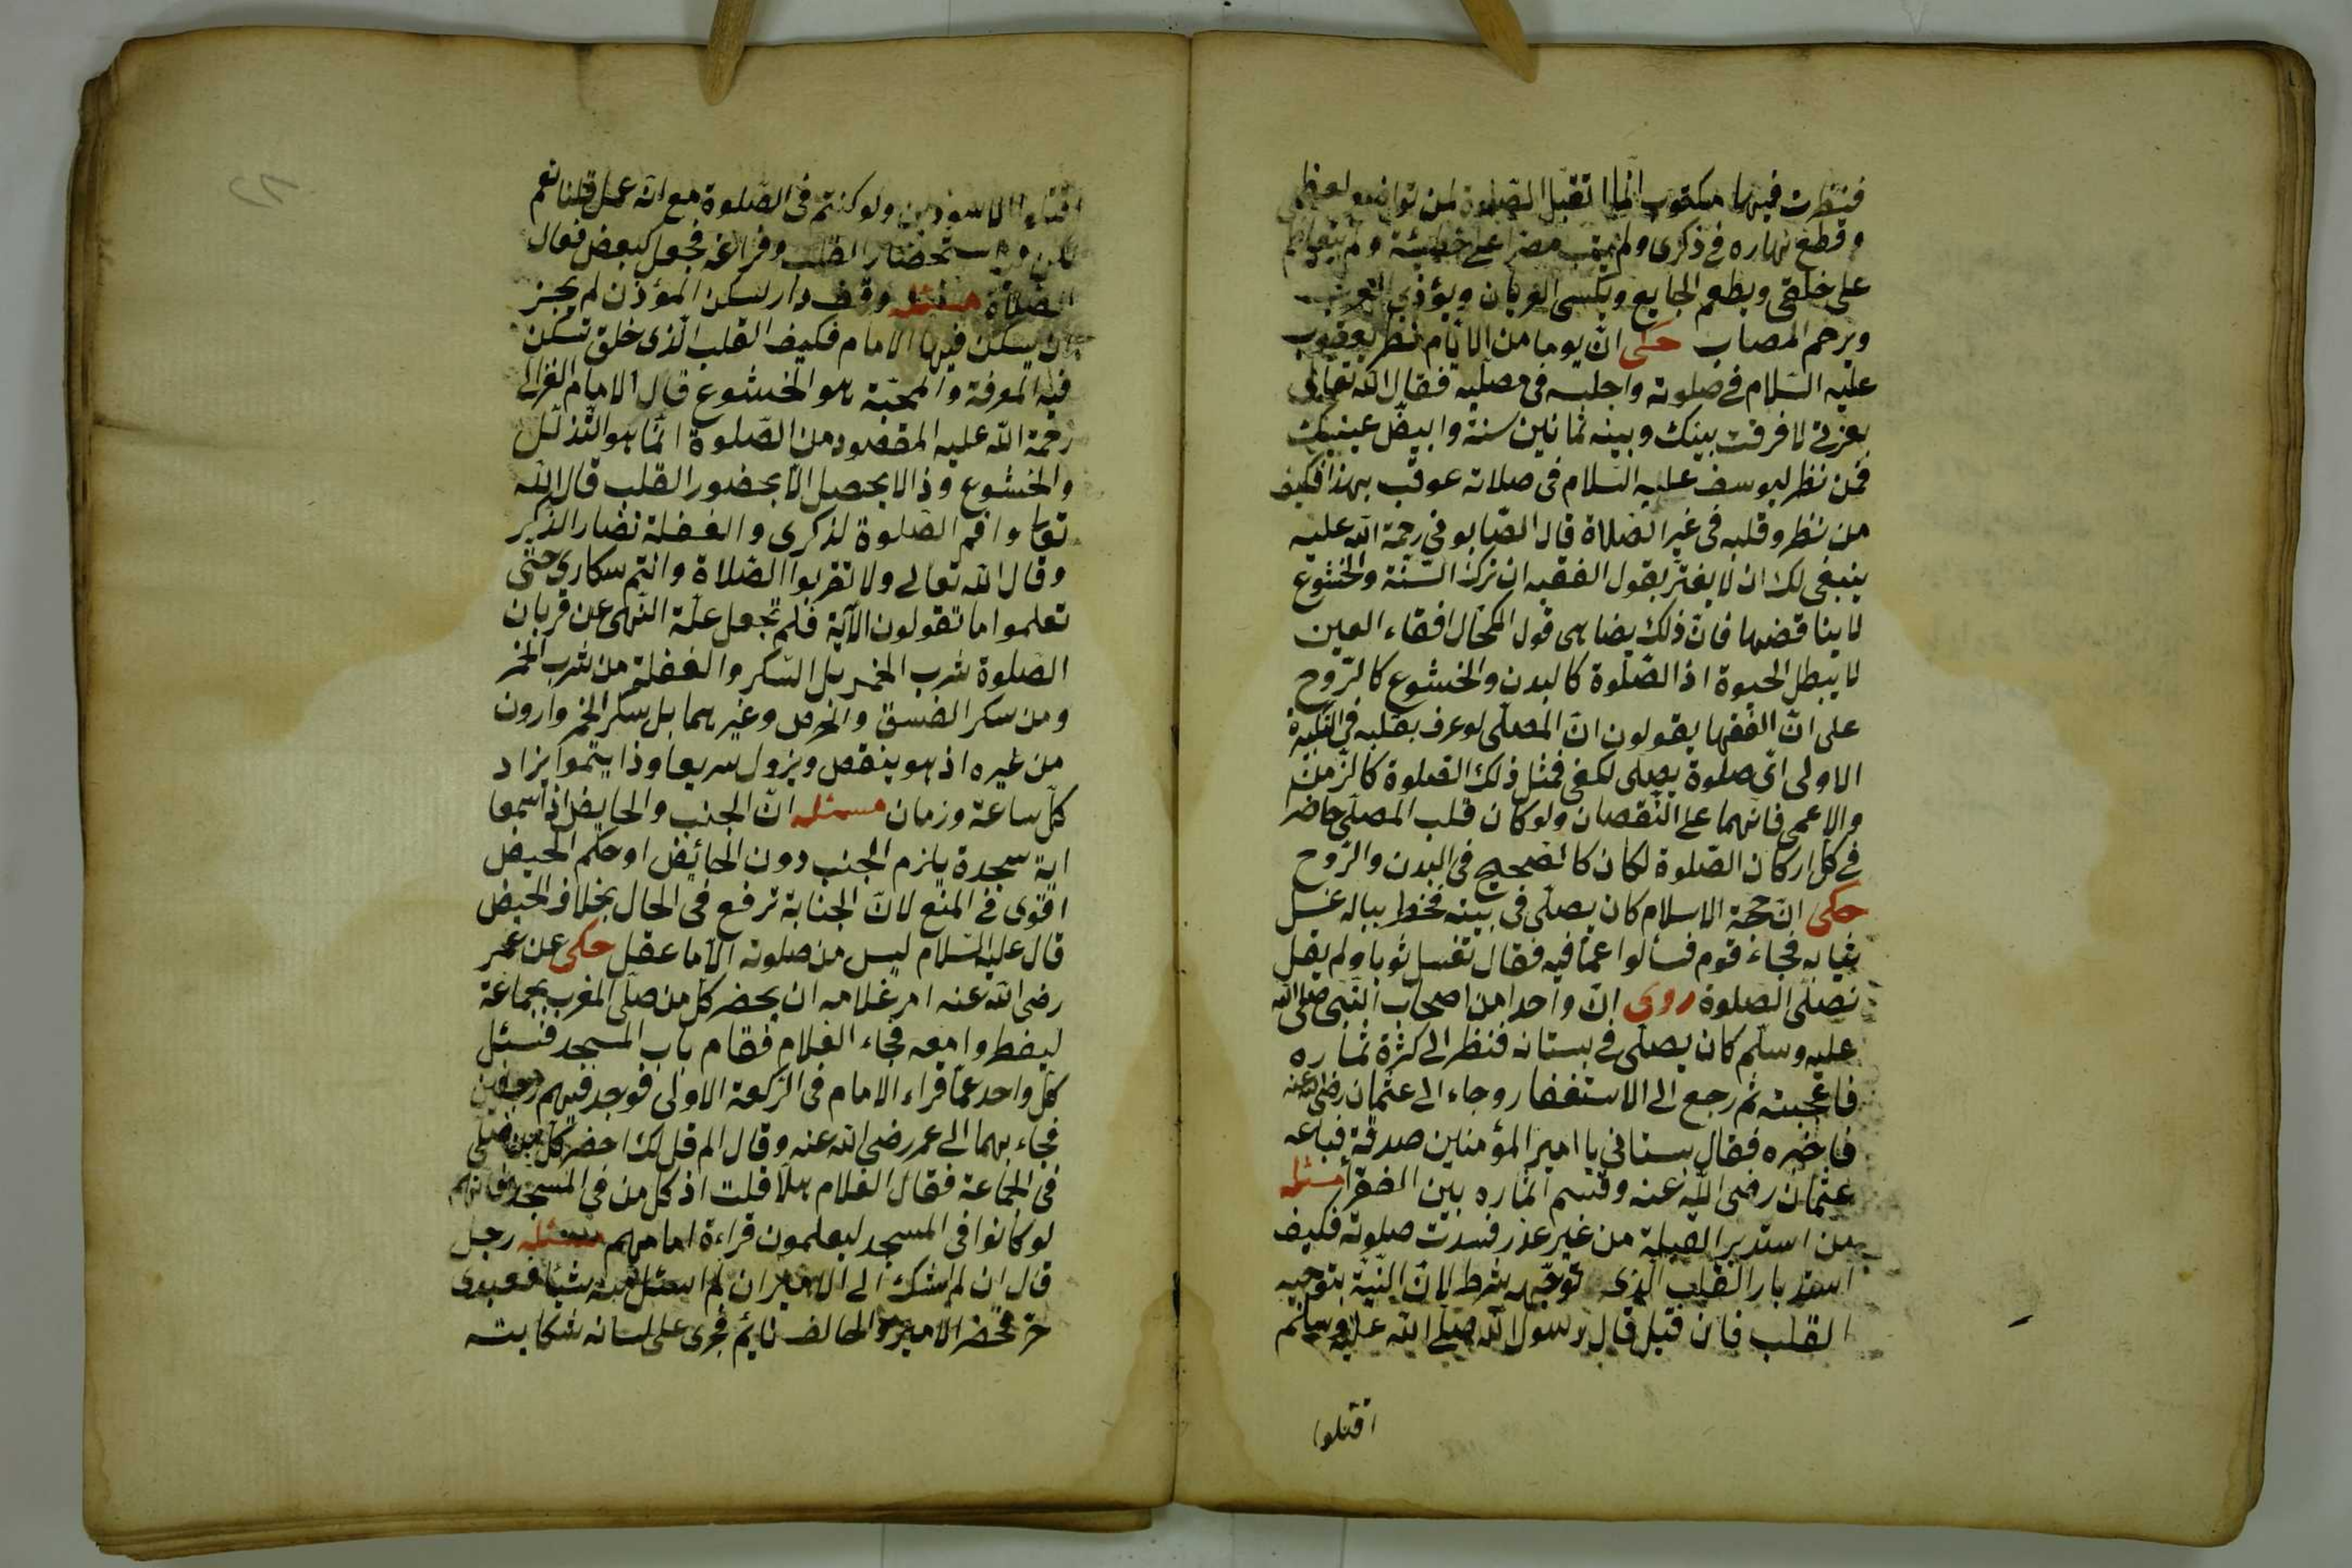 فنظرت فيها مكتوب انما اتقبل الصلوة لمن تواضع لعظمتي
وقطع نهاره في ذكرى ولم يبت مصرا على خطيئة ولم يتعاظم
على خلقى ويطعم الجايع ويكسى العريان ويؤذى الغريب
ويرحم المصاب حكى انّ يوما من الايّام نظر يعقوب
عليه السّلام في صلوته واجلسه فى مصلّيه فقال الله تعالى
بعزتى لافرقت بينك وبينه ثمانين سنة وابيضّ عينيك
فمن نظر ليوسف عليه السّلام فى صلاته عوقب بهذا فكيف
من نظر وقلبه فى غير الصّلاة قال الصّابوني رحمة الله عليه
ينبغى لك ان لا يغترّ بقول الفقيه ان ترك السّنّة والخشوع
لا يناقضها فانّ ذلك يضاهى قول الكحّال افقاء العين
لا يبطل الحيوة اذ الصّلوة كالبدن والخشوع كالرّوح
على انّ الفقها يقولون انّ المصلّى لو عرف بقلبه في التكبيرة
الاولى اىّ صلوة يصلى لكفى فمثل ذلك الصّلوة كالزّمن
والاعمى فانّهما على النّقصان ولو كان قلب المصلّى حاضرا
في كلّ اركان الصّلوة لكان كالصّحيح فى البدن والرّوح
حكى انّ حجّة الاسلام كان يصلّى فى بيته فخطر بباله غسل
ثيابه فجاء قوم فسألوا عمّا فيه فقال تغسل ثوبا ولم يقل
نصلّى الصّلوة روى انّ واحدا من اصحاب النّبى صلى الله
عليه وسلّم كان يصلّى في بستانه فنظر الى كثرة ثماره
فاعجبته ثم رجع الى الاستغفار وجاء الى عثمان رضى الله عنه
فاخبره فقال بستانى يا امير المؤمنين صدقة فباعه
عثمان رضى الله عنه وقسم اثماره بين الفقرأ مسئله
من استدبر القبلة من غير عذر فسدت صلوته فكيف
استدبار القلب الّذى توجّهه شرط لانّ النّيّة بتوجيه
القلب فان قيل قال رسول الله صلّى الله عليه وسلّم
اقتلوا
اقتلوا الاسودين ولو كنتم فى الصّلوة مع انّه عمل قلنا نعم
لكن فيه استحضار القلب وفراغه فجعل كبعض فعال
الصّلاة مسئله وقف دار لسكن المؤذن لم يجز
ان يسكن فيها الامام فكيف القلب الّذى خلق تسكن
فيه المعرفة والمحبّة هو الخشوع قال الامام الغزالى
رحمة الله عليه المقصود من الصّلوة انّما هو التّذلّل
والخشوع وذا لا يحصل الّا بحضور القلب قال الله
تعالى واقم الصّلوة لذكرى والغفلة تضار الذّكر
وقال الله تعالى ولا تقربوا الصّلاة وانتم سكارى حتّى
تعلموا ما تقولون الآية فلم تجعل علّة النّهى عن قربان
الصّلوة شرب الخمر بل السّكر والغفلة من شرب الخمر
ومن سكر الفسق والحرص وغيرهما بل سكر الخمر وارون
من غيره اذ هو ينقص ويزول سريعا وذا ينموا يزاد
كلّ ساعة وزمان مسئله انّ الجنب والحايض اذا سمعا
اية سجدة يلزم الجنب دون الحائض اوحكم الحيض
اقوى في المنع لانّ الجنابة ترفع فى الحال بخلاف الحيض
قال عليه السّلام ليس من صلوته الّا ما عقل حكى عن عمر
رضى الله عنه امر غلامه ان يحضر كلّ من صلّى المغرب بجماعة
ليفطروا معه فجاء الغلام فقام باب المسجد فسئل
كلّ واحد عمّا قراء الامام فى الرّكعة الاولى فوجد فيهم رجلين
فجاء بهما الى عمر رضى الله عنه وقال الم قل لك احضر كلّ من صلّى
فى الجماعة فقال الغلام هلّا قلت اذ كل من فى المسجد فانّهم
لو كانوا فى المسجد ليعلمون قراءة امامهم مسئله رجل
قال ان لم اشك الى الامير ان لم اسئل منه شيئا فعبدى
حرّ فحضر الامير والحالف نائم فجرى على لسانه شكايته